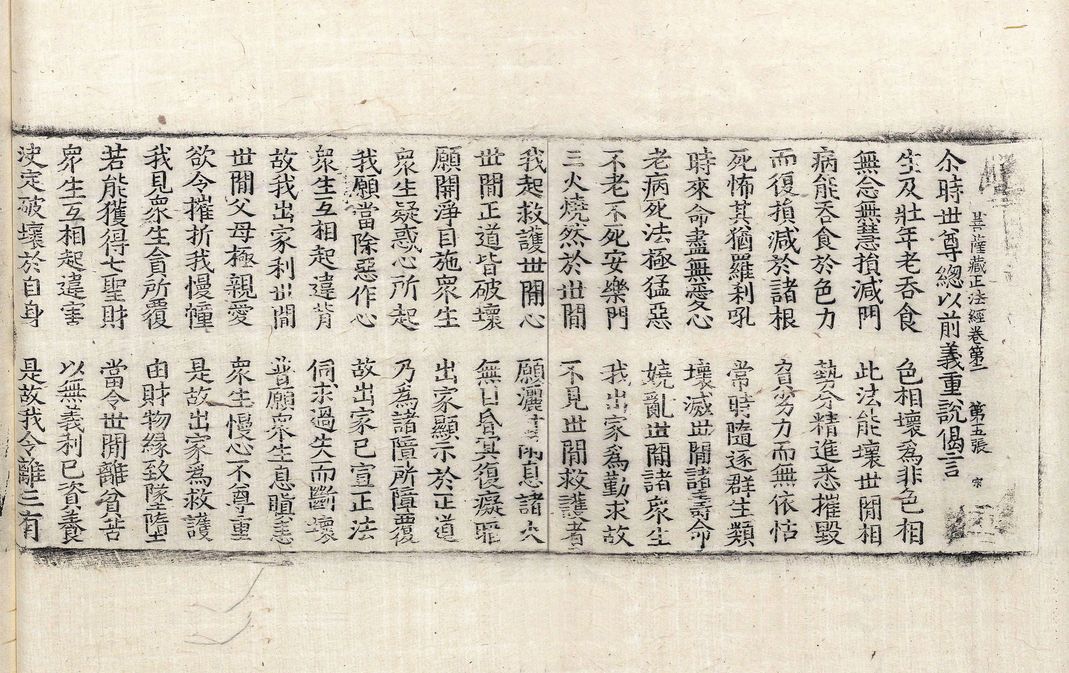 菩薩藏正法經卷第二 第五張 宋
尒時世尊緫以前義重說偈言
生及壯年老吞食 色相壞爲非色相
無念無慧損減門 此法能壞世間相
病能吞食於色力 勢分精進悉摧毀
而復損減於諸根 窮劣力而無依怙
死怖其猶羅刹吼 常時隨逐群生類
時來命盡無愛心 壞滅世間諸壽命
老病死法極猛惡 嬈亂世間諸衆生
不老不死安樂門 我出家爲勤求故
三火燒然於世間 不見世間救護者
我起救護世間心 願灑雨息諸火
世間正道皆破壞 無目昏冥復癡罪
願開淨目施衆生 出家顯示於正道
衆生疑惑心所起 乃爲諸障所障覆
我願當除惡作心 故出家已宣正法
衆生互相起違背 伺求過失而斷壞
故我出家利世間 普願衆生息瞋恚
世間父母極親愛 衆生慢心不尊重
欲令摧折我慢幢 是故出家爲救護
我見衆生貪所覆 由財物緣致墜墮
若能獲得七聖財 當令世間離貧苦
衆生互相起違害 以無義利已資養
決定破壞於自身 是故我令離三有